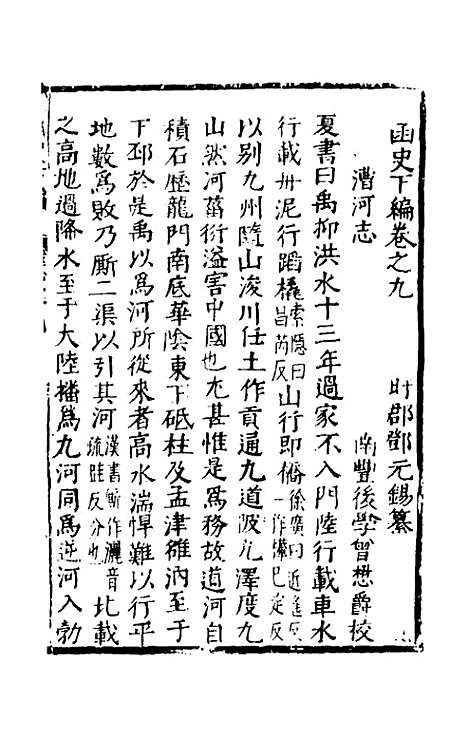 函史下編卷之九　旴郡鄧元錫纂
漕河志　南豐後學曾懋爵校
夏書曰禹抑洪水十三年過家不入門陸行載車水
行載舟泥行蹈橇索隱曰昌芮反山行即橋徐廣曰近遙反一作檋己足反
以別九州隨山浚川任土作貢通九道陂九澤度九
山然河菑衍溢害中國也尤甚惟是爲務故道河自
積石歷龍門南底華陰東下砥柱及孟津雒汭至于
下邳於是禹以爲河所從來者高水湍悍難以行平
地數爲敗乃厮二渠以引其河漢書斯作灑音疏跬反分也北載
之高地過降水至于大陸播爲九河同爲逆河入勃